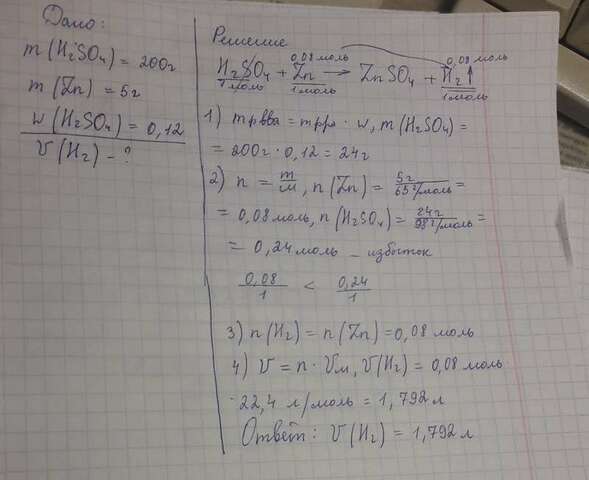 Дано:
m(H₂SO₄) = 200г
m(Zn) = 5г
w(H₂SO₄) = 0,12
V(H₂) - ?
Решение
0,08 моль 0,08 моль
H₂SO₄ + Zn → ZnSO₄ + H₂↑
1моль 1моль 1моль
1) mрвва = mрра · w, m(H₂SO₄) =
= 200г · 0,12 = 24г
2) n = m/M, n(Zn) = 5г/65г/моль =
= 0,08моль, n(H₂SO₄) = 24г/98г/моль =
= 0,24моль - избыток
0,08/1 < 0,24/1
3) n(H₂) = n(Zn) = 0,08 моль
4) V = n · Vм, V(H₂) = 0,08 моль
· 22,4 л/моль = 1,792л
Ответ: V(H₂) = 1,792л